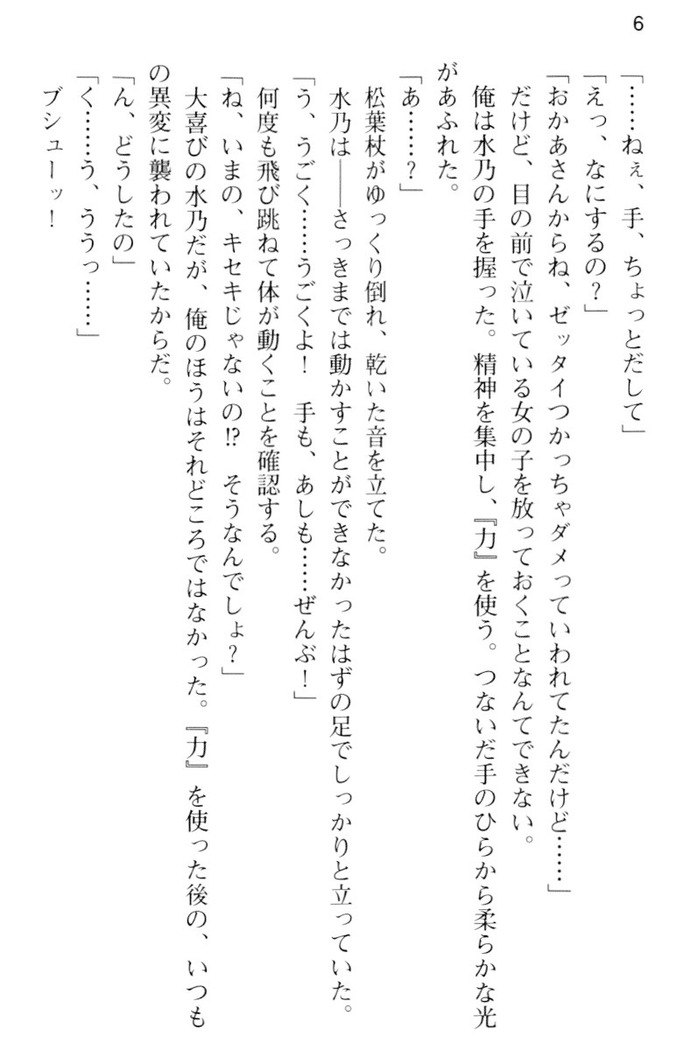 6
「……ねぇ、手、ちょっとだして」
「えっ、なにするの？」
「おかあさんからね、ゼッタイつかっちゃダメっていわれてたんだけど……」
だけど、目の前で泣いている女の子を放っておくことなんてできない。
俺は水乃の手を握った。精神を集中し、『力』を使う。つないだ手のひらから柔らかな光
があふれた。
「あ……？」
松葉杖がゆっくり倒れ、乾いた音を立てた。
水乃は――さっきまでは動かすことができなかったはずの足でしっかりと立っていた。
「う、うごく……うごくよ！　手も、あしも……ぜんぶ！」
何度も飛び跳ねて体が動くことを確認する。
「ね、いまの、キセキじゃないの!?　そうなんでしょ？」
大喜びの水乃だが、俺のほうはそれどころではなかった。『力』を使った後の、いつも
の異変に襲われていたからだ。
「ん、どうしたの」
「く……う、ううっ……」
ブシューッ！